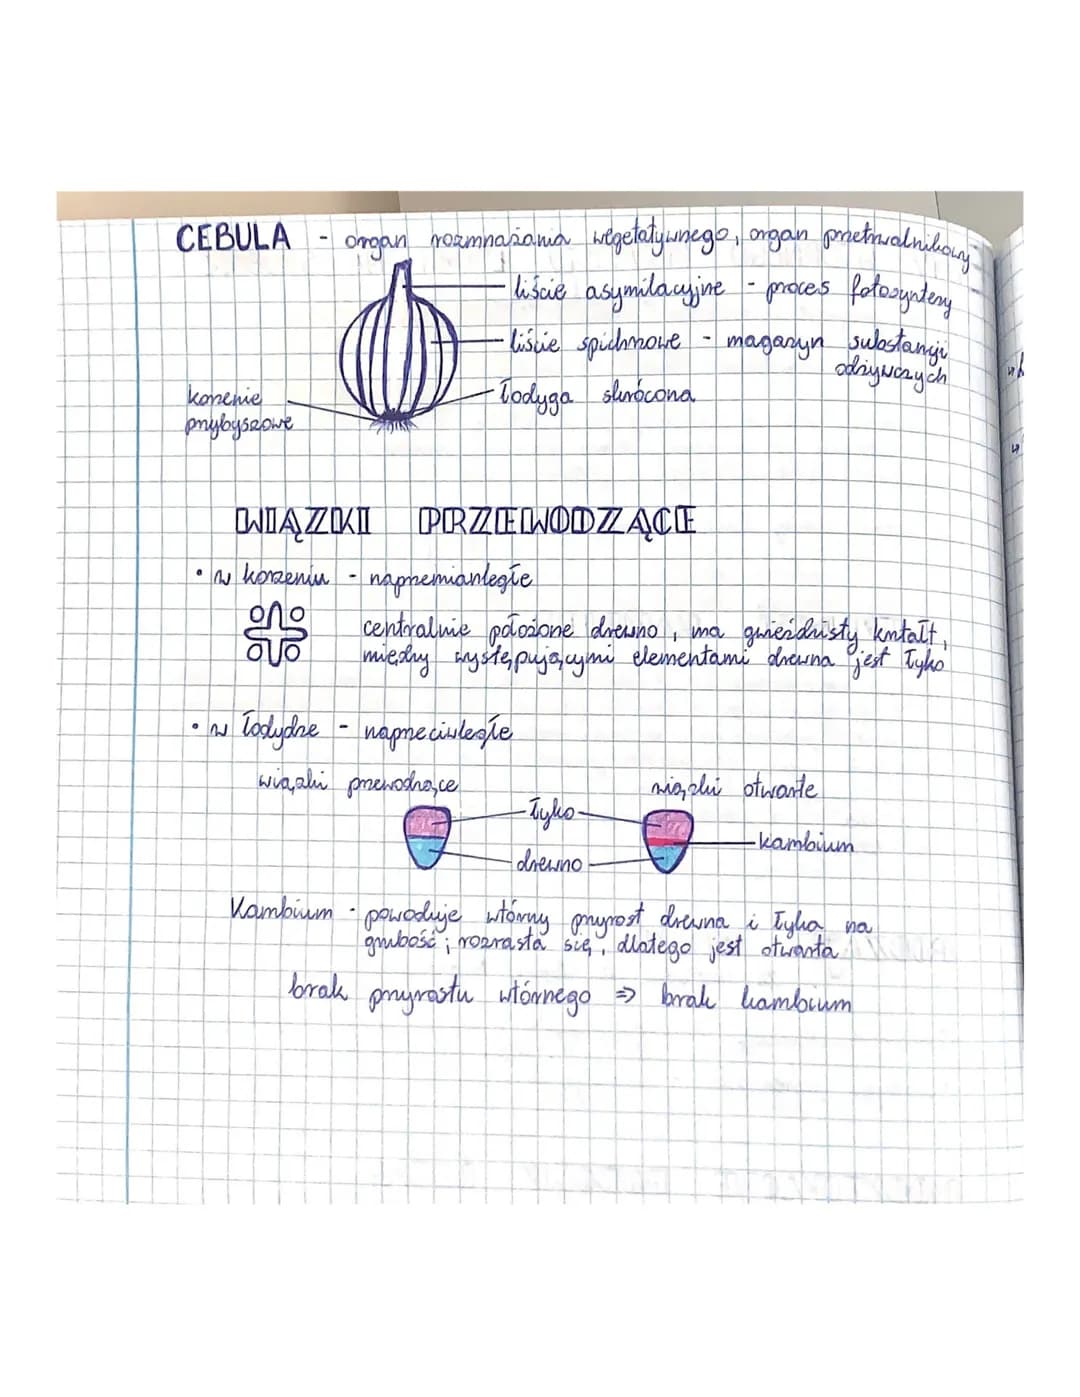 CEBULA - organ rozmnażania wegetatywnego, organ przetrwalnikowy
liście asymilacyjne - proces fotosyntezy
liście spichrzowe - magazyn substancji
odżywczych
łodyga skrócona
korzenie
przybyszowe
WIĄZKI PRZEWODZĄCE
• w korzeniu - naprzemianległe
centralnie położone drewno, ma gwieździsty kształt,
między występującymi elementami drewna jest łyko
• w łodydze - naprzeciwległe
wiązki przewodzące
wiązki otwarte
łyko
kambium
drewno
Kambium - powoduje wtórny przyrost drewna i łyka na
grubość; rozrasta się, dlatego jest otwarta
brak przyrostu wtórnego => brak kambium